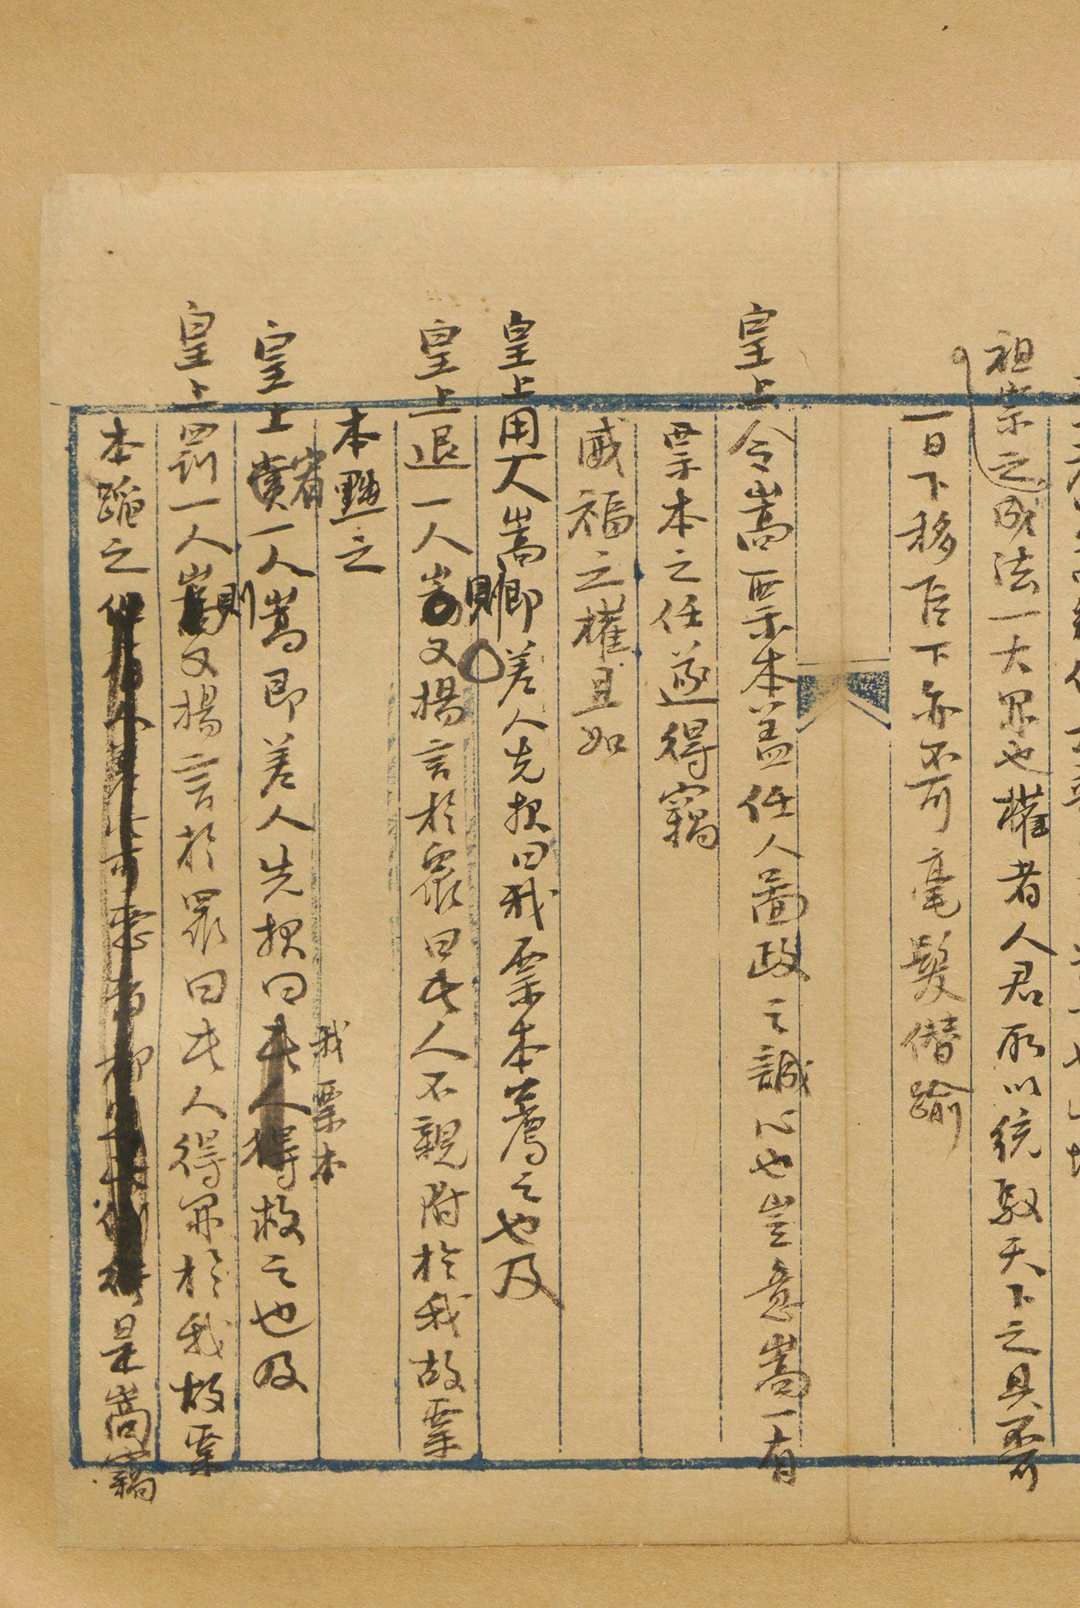 祖宗之成法一大罪也權者人君所以統馭天下之具不可
一日下移臣下亦不可毫髮僭踰
皇上令嵩票本蓋任人圖政之誠心也豈意嵩一有
票本之任遂得竊
威福之權且如
皇上用人嵩卽差人先報曰我票本薦之也及
皇上退一人嵩則又揚言於眾曰此人不親附於我故票
本黜之
皇上宥一人嵩即差人先報曰我票本救之也及
皇上罰一人嵩則又揚言於眾曰此人得罪於我故票
本
之
是嵩竊